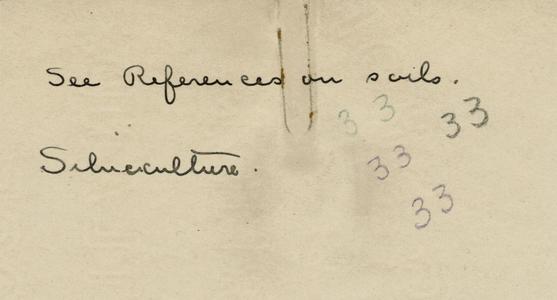 See References on soils.
33
33
Silviculture.
33
33